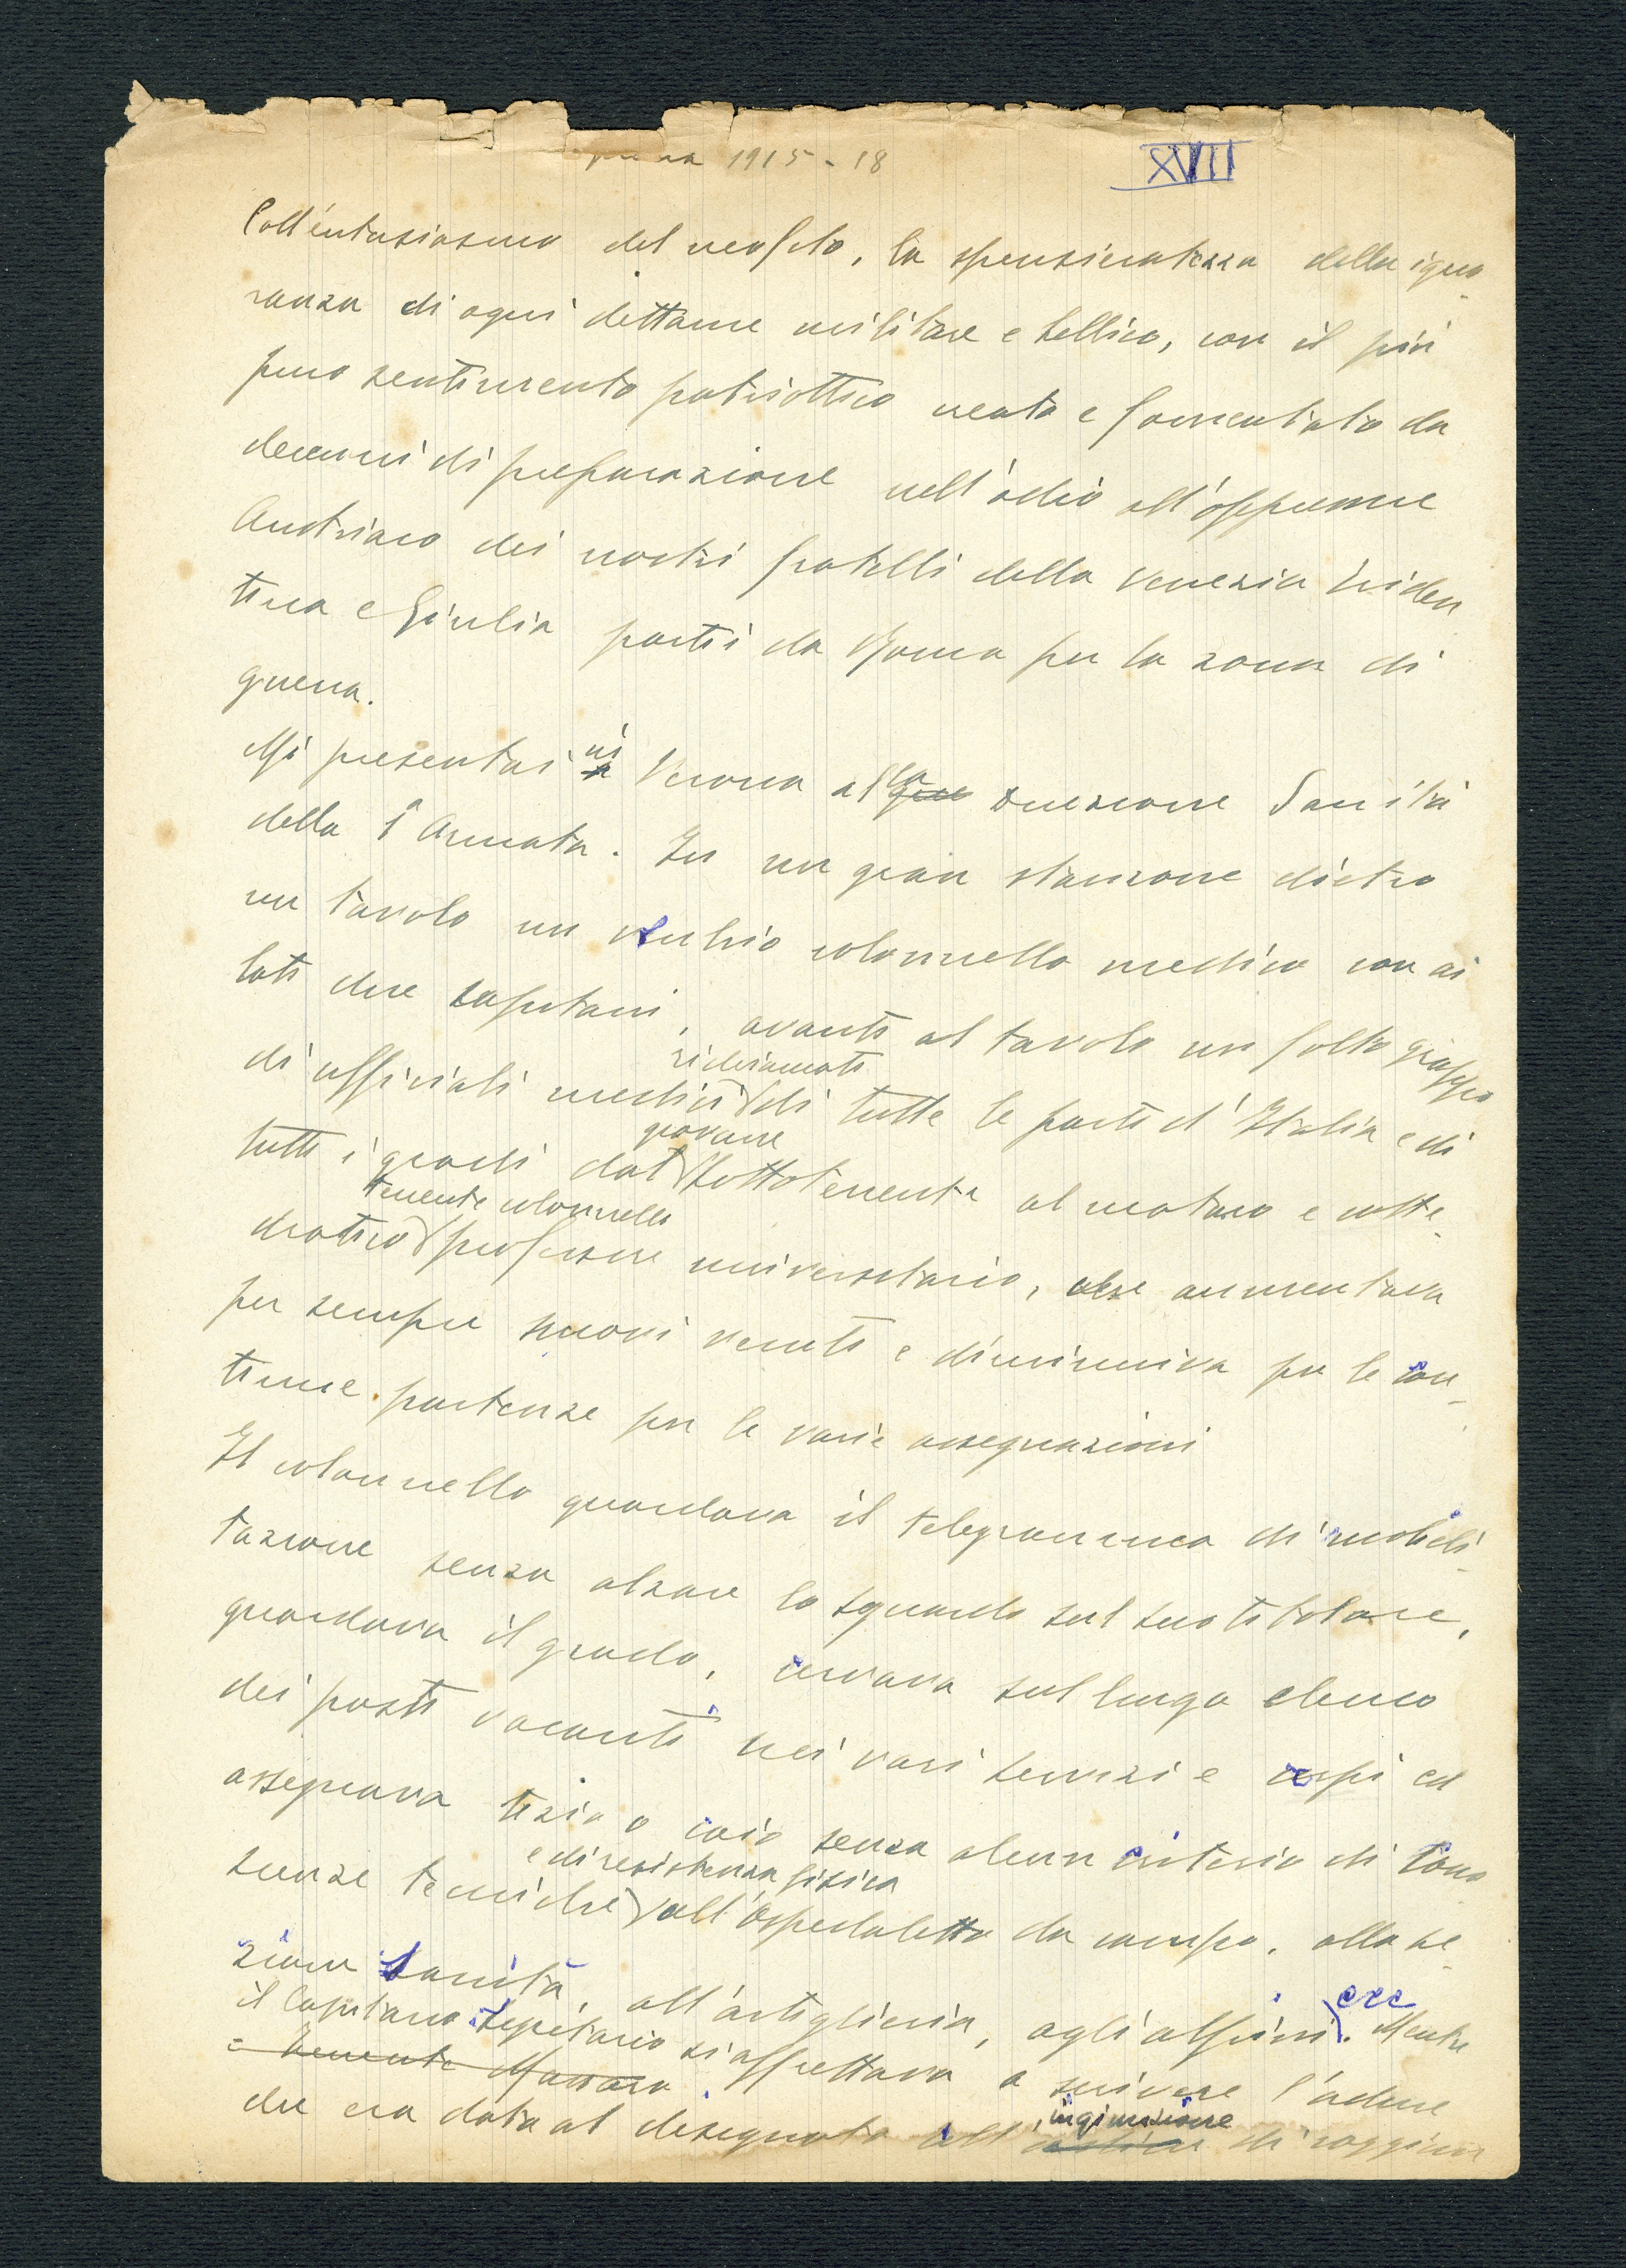 guerra 1915-18
XVII
Coll'entusiasmo del neofito, la spensieratezza della igno-
ranza di ogni dettame militare e bellico, con il più
puro sentimento patriottico creato e fomentato da
decenni di preparazione nell'odio all'oppressore
Austriaco dei nostri fratelli della Venezia Triden
tina e Giulia partii da Roma per la zona di
guerra.
Mi presentai in Verona alla Direzione Sanità
della 1ª Armata. In un gran stanzone dietro
un tavolo un vecchio colonnello medico con ai
lati due capitani, avanti al tavolo un folto gruppo
richiamati
di ufficiali medici di tutte le parti d'Italia e di
giovane
tutti i gradi dal sottotenente al maturo e catte-
tenente colonnello
dratico professore universitario, che aumentava
per sempre nuovi venuti e diminuiva per le con-
tinue partenze per le varie assegnazioni
Il colonnello guardava il telegramma di mobili-
tazione senza alzare lo sguardo sul suo titolare,
guardava il grado, cercava sul lungo elenco
dei posti vacanti nei vari servizi e corpi ed
assegnava tizio o caio senza alcun criterio di cono-
e di resistenza fisica
scenze tecniche all'ospedaletto da campo, alla se-
zione Sanità, all'artiglieria, agli alpini ecc. Mentre
il Capitano segretario si affrettava a scrivere l'ordine
e tenente
che era data al designato all'
ingiunzione
di raggiun